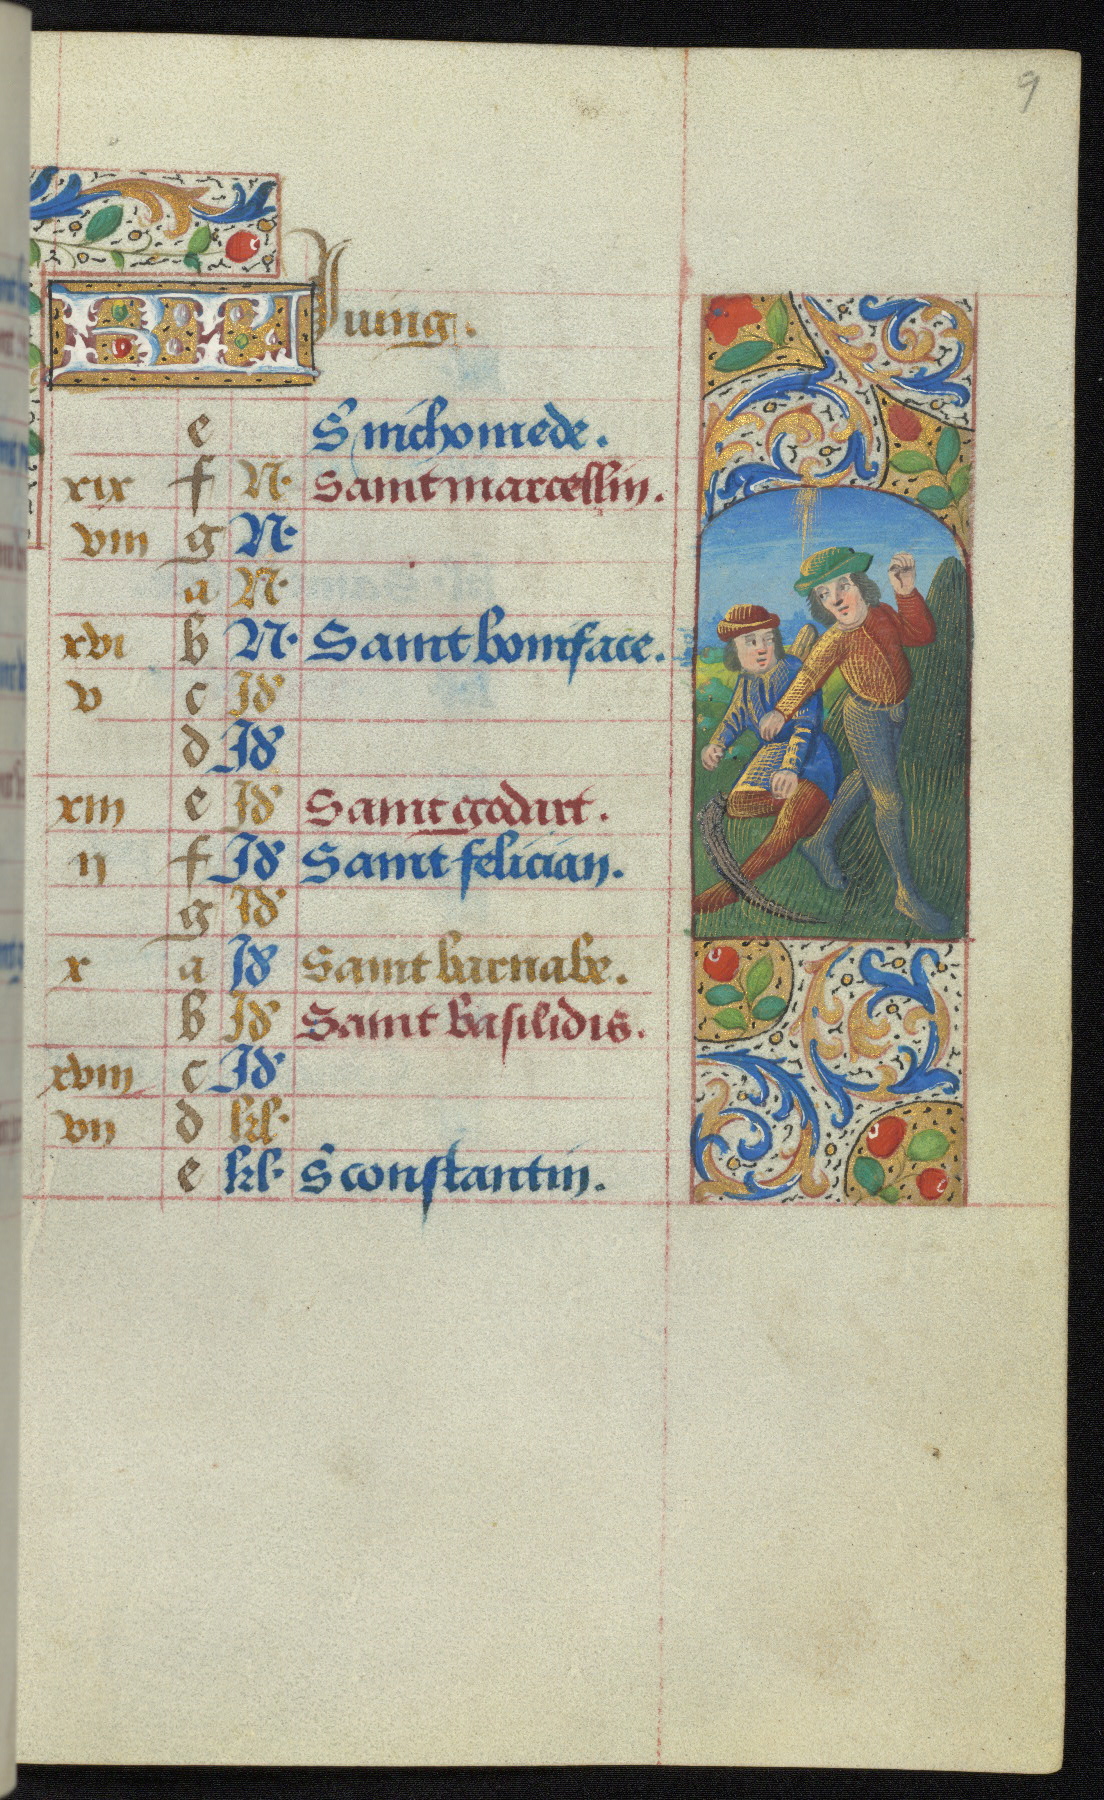 9
KL Iuing.
e S nichomede.
xix f N. Saint marcellin.
viii g N.
a N.
xvi b N. Saint boniface.
v c Id
d Id
xiii e Id Saint godart.
ii f Id Saint felician.
g Id
x a Id Saint barnabe.
b Id Saint basilidis.
xviii c Id
vii d kl.
e kl. S constantin.